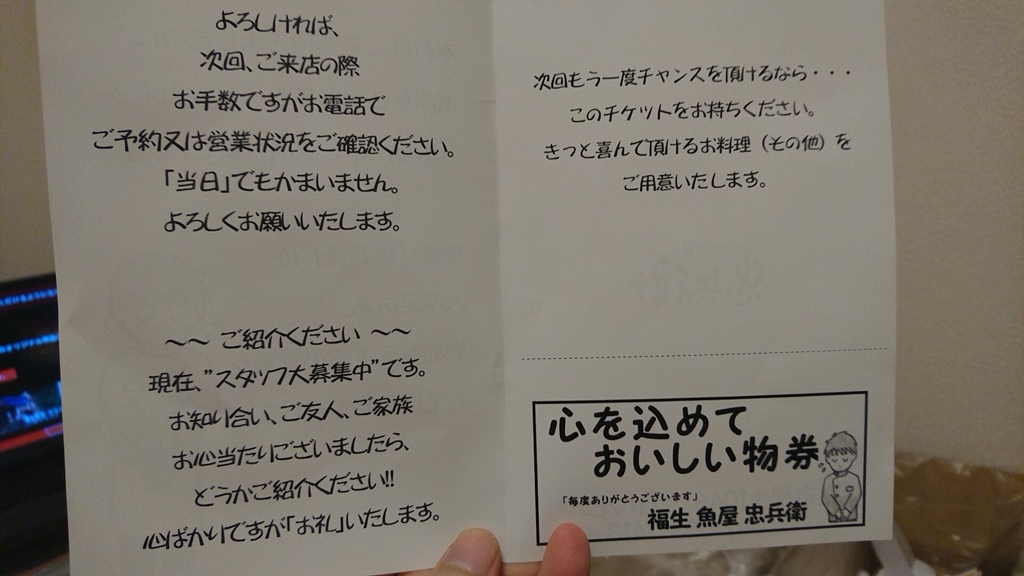 よろしければ、
次回、ご来店の際
お手数ですがお電話で
ご予約又は営業状況をご確認ください。
「当日」でもかまいません。
よろしくお願いいたします。
～～ ご紹介ください ～～
現在、"スタッフ大募集中"です。
お知り合い、ご友人、ご家族
お心当たりございましたら、
どうかご紹介ください!!
心ばかりですが「お礼」いたします。
次回もう一度チャンスを頂けるなら・・・
このチケットをお持ちください。
きっと喜んで頂けるお料理（その他）を
ご用意いたします。
心を込めて
おいしい物券
「毎度ありがとうございます」
福生 魚屋 忠兵衛